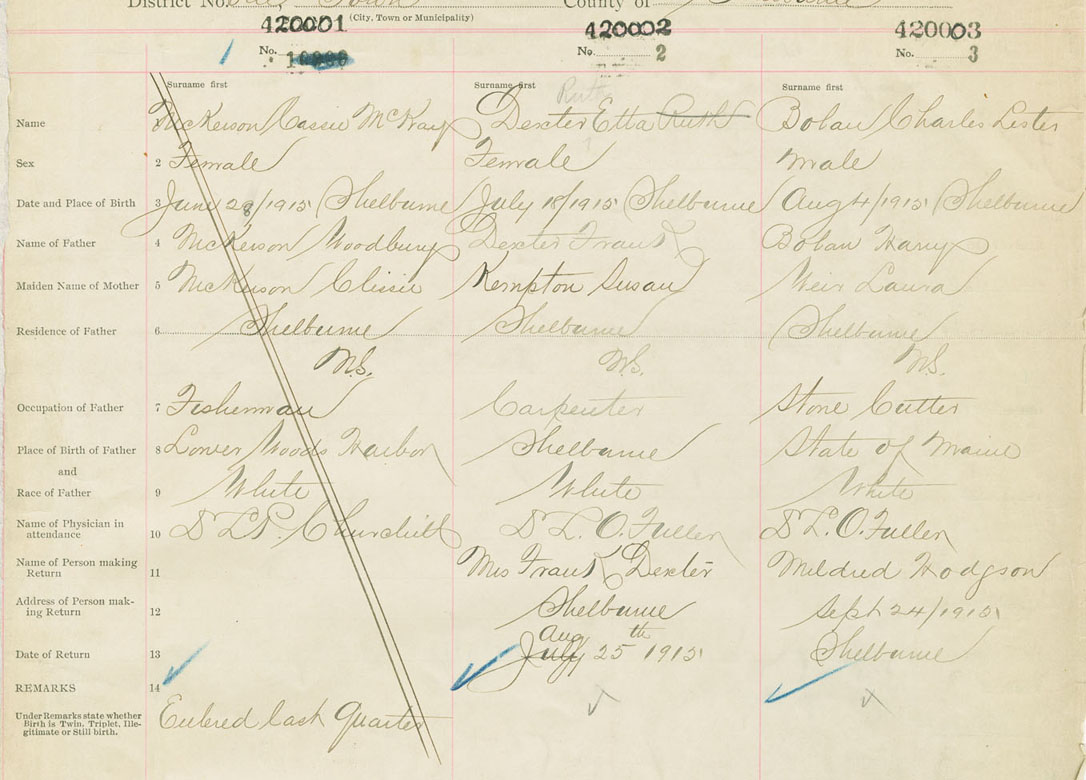 District No. Town County of
(City, Town or Municipality)
420001 420002 420003
No. No. 2 No. 3
Surname first Surname first Surname first
Ruth
Name McKerson Cassie McKay Dexter Etta Ruth Bolan Charles Lester
Sex 2 Female Female Male
Date and Place of Birth 3 June 28/1915 Shelburne July 18/1915 Shelburne Aug 4/1915 Shelburne
Name of Father 4 McKerson Woodbury Dexter Frank Bolan Harry
Maiden Name of Mother 5 McKerson Clissie Kempton Susan Weir Laura
Residence of Father 6 Shelburne Shelburne Shelburne
N.S. N.S. N.S.
Occupation of Father 7 Fisherman Carpenter Stone Cutter
Place of Birth of Father 8 Lower Woods Harbor Shelburne State of Maine
and
Race of Father 9 White White White
Name of Physician in
attendance 10 Churchill D L. O. Fuller D L. O. Fuller
Name of Person making
Return 11 Mrs Frank Dexter Mildred Hodgson
Address of Person mak-
ing Return 12 Shelburne Sept 24/1915
Aug
Date of Return 13 July 25th 1915 Shelburne
REMARKS 14
Under Remarks state whether
Birth is Twin, Triplet, Ille-
gitimate or Still birth.
Entered last Quarter